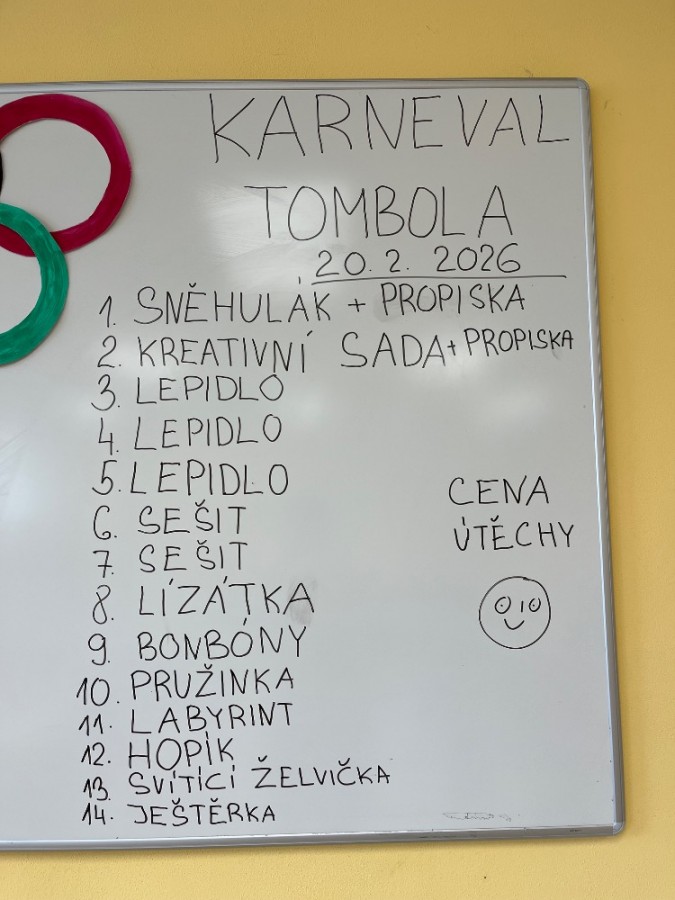 KARNEVAL
TOMBOLA
20. 2. 2026
1. SNĚHULÁK + PROPISKA
2. KREATIVNÍ SADA + PROPISKA
3. LEPIDLO
4. LEPIDLO
5. LEPIDLO
6. SEŠIT
7. SEŠIT
8. LÍZÁTKA
9. BONBÓNY
10. PRUŽINKA
11. LABYRINT
12. HOPÍK
13. SVÍTÍCÍ ŽELVIČKA
14. JEŠTĚRKA
CENA
ÚTĚCHY